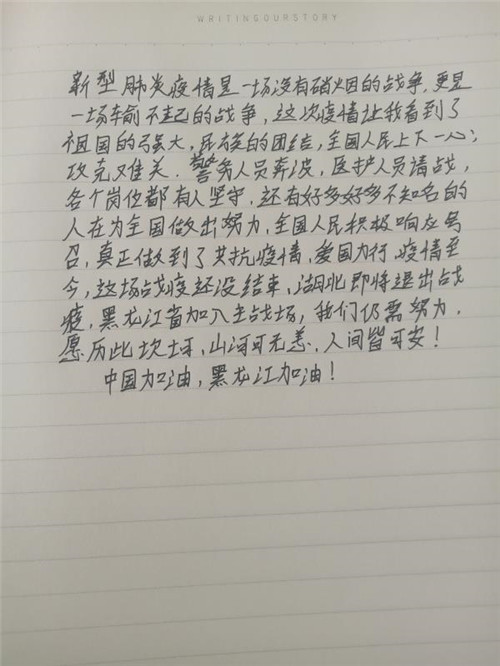 WRITINGOURSTORY
新型肺炎疫情是一场没有硝烟的战争,更是
一场输不起的战争,这次疫情让我看到了
祖国的强大,民族的团结,全国人民上下一心,
攻克难关,警务人员奔波,医护人员请战,
各个岗位都有人坚守,还有好多好多不知名的
人在为全国做出努力,全国人民积极响应号
召,真正做到了共抗疫情,爱国力行,疫情至
今,这场战疫还没结束,湖北即将退出战
疫,黑龙江省加入主战场,我们仍需努力,
愿历此坎坷,山河可无恙,人间皆可安!
中国加油,黑龙江加油!